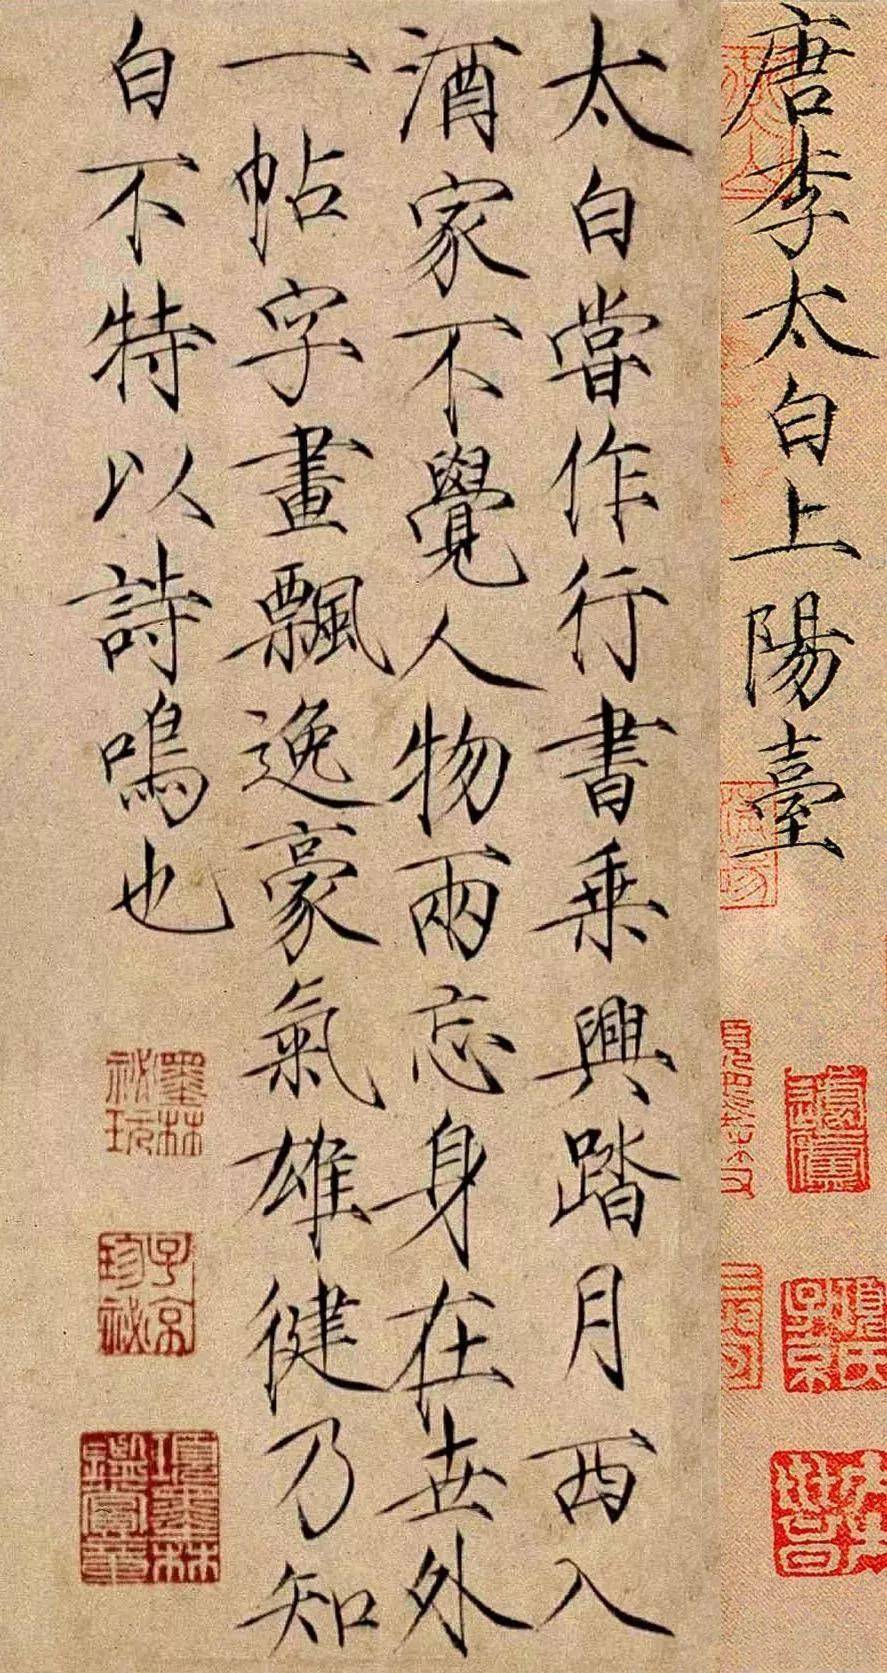 唐李太白上陽臺
太白嘗作行書乘興踏月西入
酒家不覺人物兩忘身在世外
一帖字畫飄逸豪氣雄徤乃知
白不特以詩鳴也
墨林祕玩
子京珍祕
項墨林鑑賞章
項氏子京